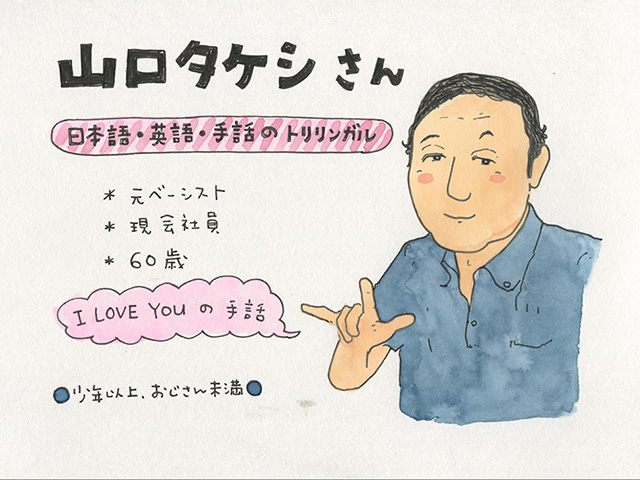 山口タケシさん
日本語・英語・手話のトリリンガル
* 元ベーシスト
* 現会社員
* 60歳
I LOVE YOUの手話
●少年以上、おじさん未満●